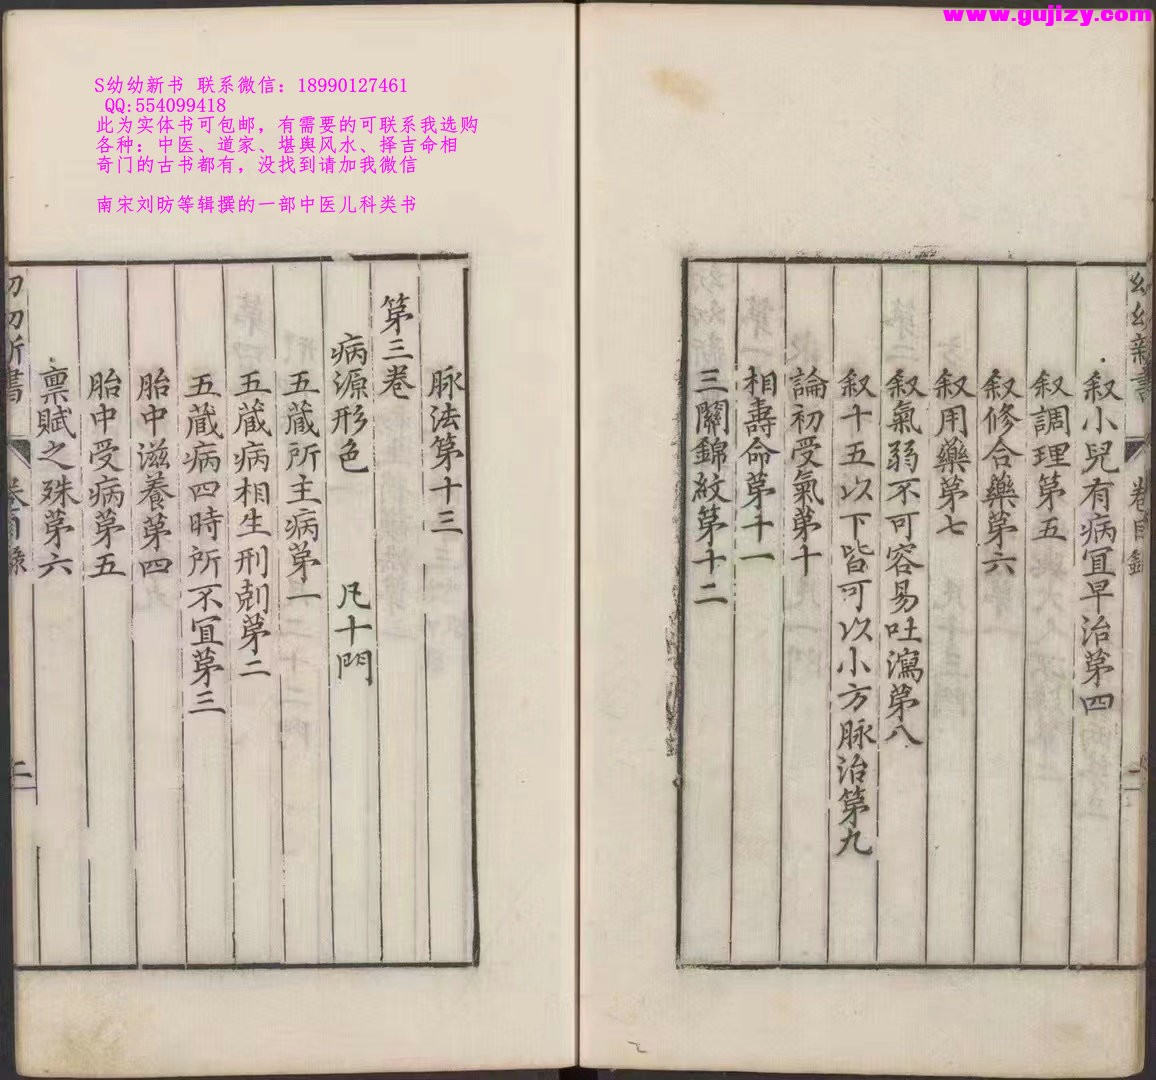 www.gujizy.com
S幼幼新书 联系微信：18990127461
QQ:554099418
此为实体书可包邮，有需要的可联系我选购
各种：中医、道家、堪舆风水、择吉命相
奇门的古书都有，没找到请加我微信
南宋刘昉等辑撰的一部中医儿科类书
幼幼新書 卷目錄 二
叙小兒有病冝早治第四
叙調理第五
叙修合藥第六
叙用藥第七
叙氣弱不可容易吐瀉第八
叙十五以下皆可以小方脉治第九
論初受氣第十
相壽命第十一
三關錦紋第十二
脉法第十三
第三卷
病源形色 凡十門
五蔵所主病第一
五蔵病相生刑剋第二
五蔵病四時所不冝第三
胎中滋養第四
胎中受病第五
禀賦之殊第六